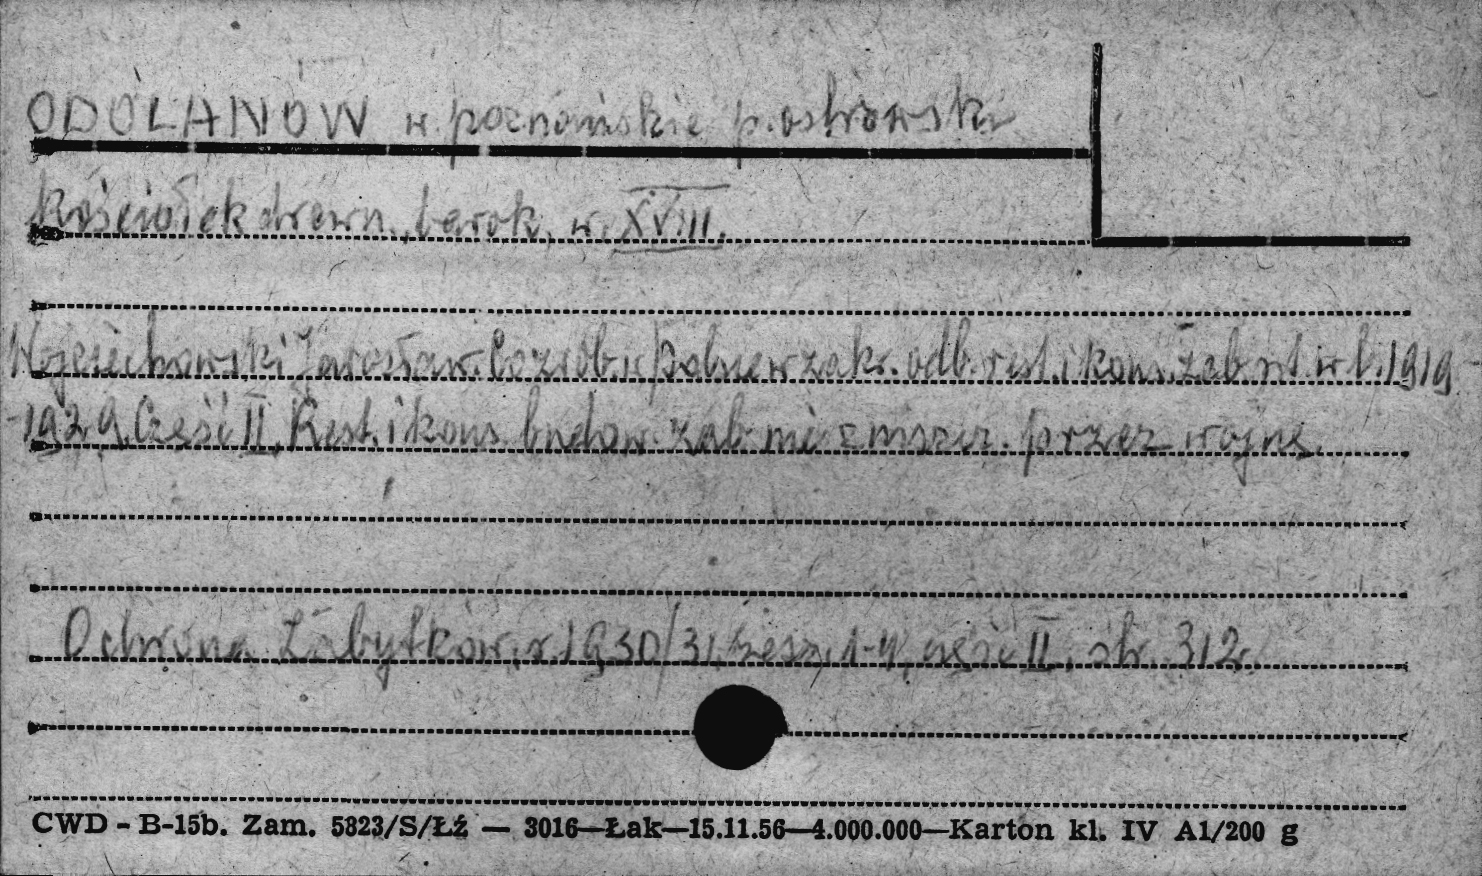 ODOLANÓW w poznańskie p. ostrowski
Kościółek drewn., barok. w. XVIII.
Wojciechowski Jarosław. Co zrob. w Polsce w zakr. odb. rest. i kons. zab. szt. w l. 1919
-1929. Część II. Rest. i kons. budow. zab. nie zniszcz. przez wojnę.
Ochrona Zabytków, r. 1930/31, zesz. 1-4, część II, str. 312.
CWD - B-15b. Zam. 5823/S/Łź — 3016—Łak—15.11.56—4.000.000—Karton kl. IV A1/200 g